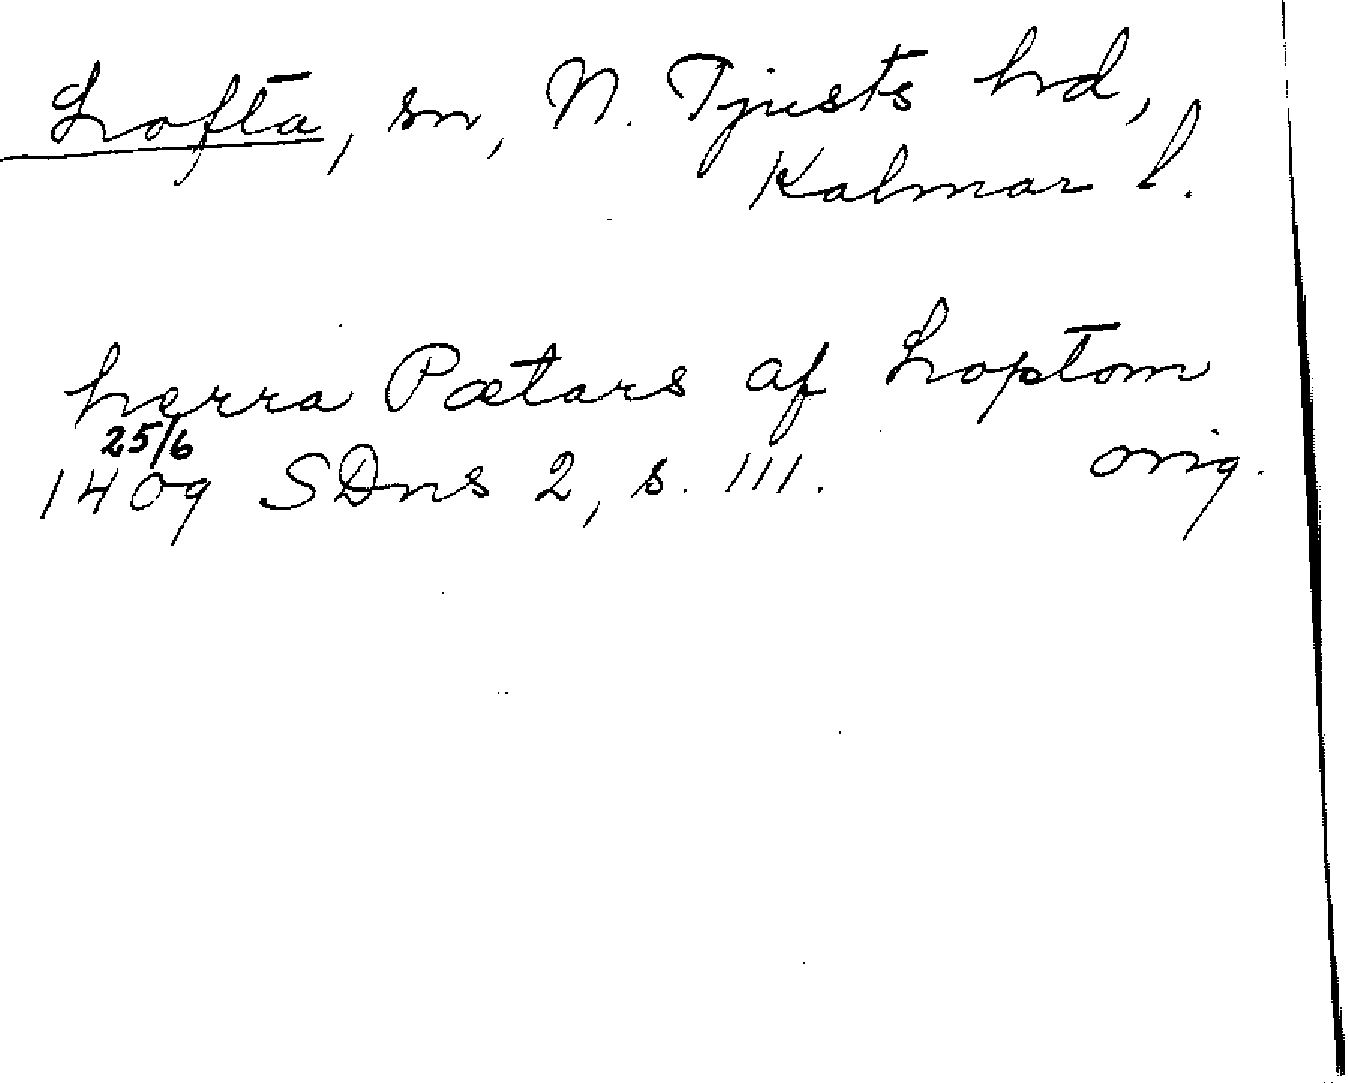 Lofta, sn, N. Tjusts hd,
Kalmar l.
herra Pætars af Loptom
25/6
1409 SDns 2, s. 111. orig.